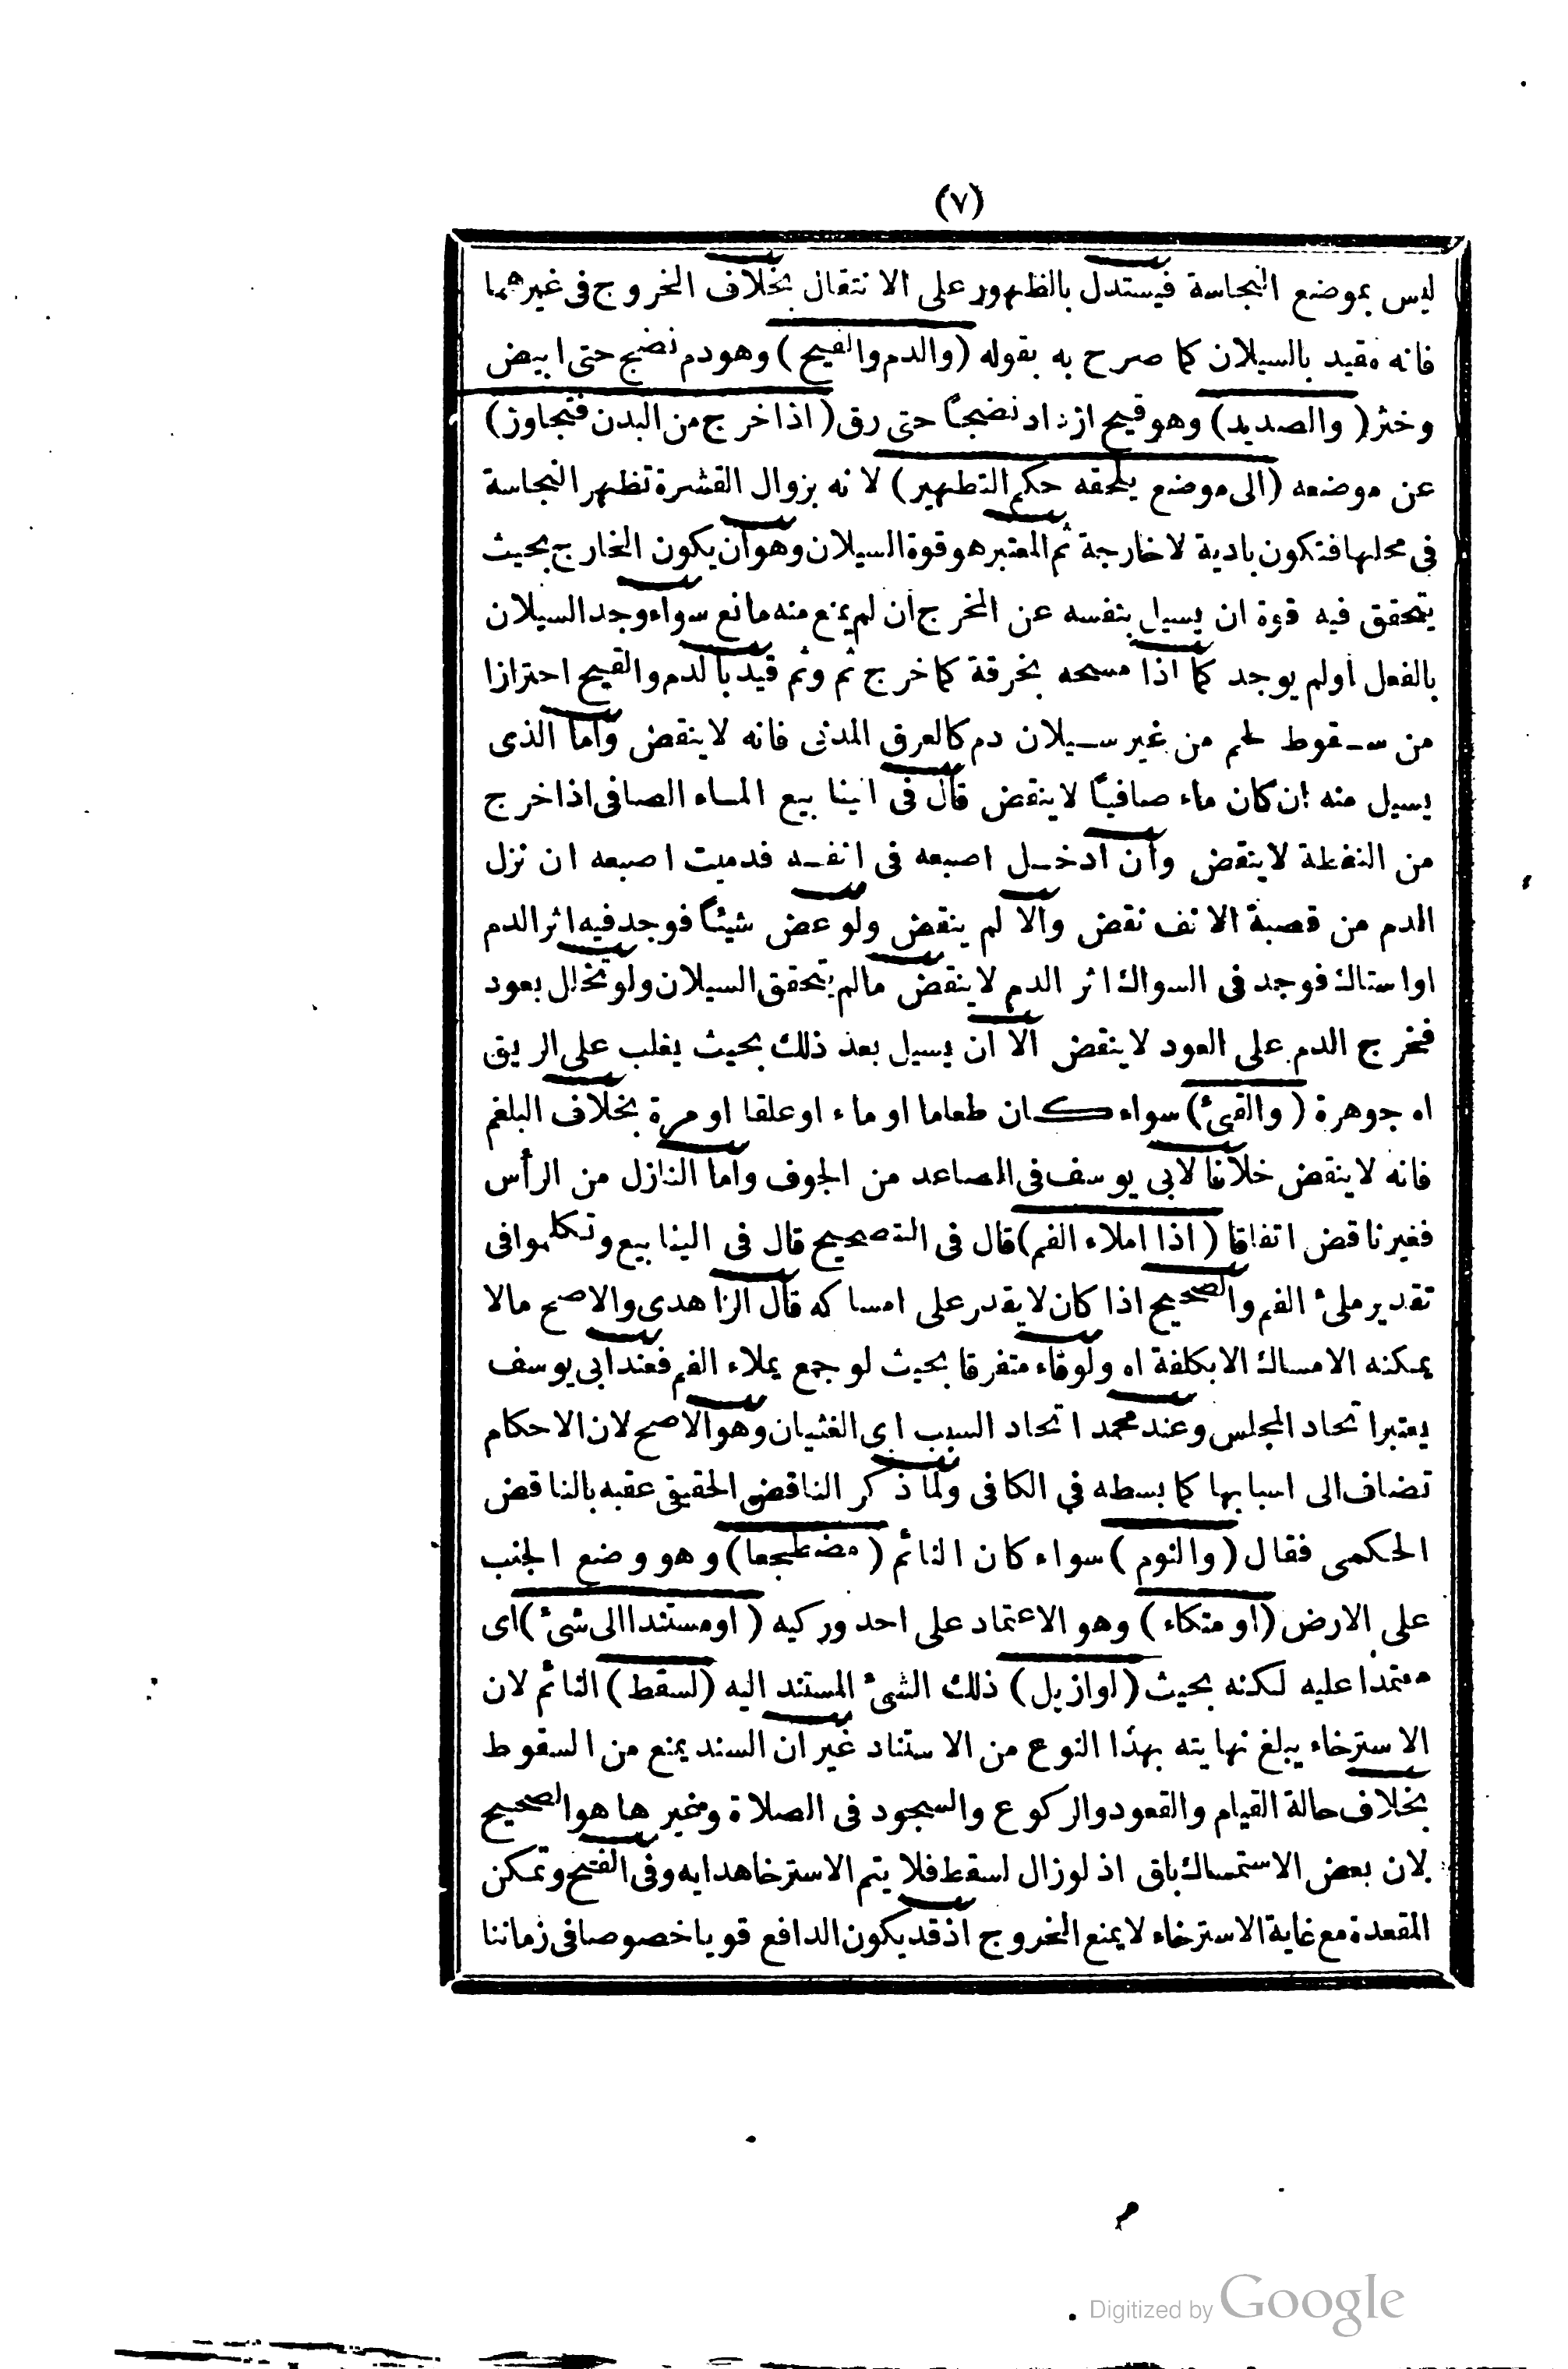 (٧)
ليس بموضع النجاسة فيستدل بالظهور على الانتقال بخلاف الخروج فى غيرهما
فانه مقيد بالسيلان كما صرح به بقوله (والدم والقيح) وهو دم نضج حتى ابيض
وخثر (والصديد) وهو قيح ازداد نضجاً حتى رق (اذا خرج من البدن فتجاوز)
عن موضعه (الى موضع يلحقه حكم التطهير) لانه بزوال القشرة تظهر النجاسة
فى محلها فتكون بادية لا خارجة ثم المعتبر هو قوة السيلان وهو أن يكون الخارج بحيث
يتحقق فيه قوة ان يسيل بنفسه عن المخرج ان لم يمنع منه مانع سواء وجد السيلان
بالفعل أو لم يوجد كما اذا مسحه بخرقة كما خرج ثم وثم قيد بالدم والقيح احترازا
من سقوط لحم من غير سيلان دم كالعرق المدنى فانه لا ينقض وأما الذى
يسيل منه ان كان ماء صافياً لا ينقض قال فى الينابيع الماء الصافى اذا خرج
من النفطة لا ينقض وان ادخل اصبعه فى انفه فدميت اصبعه ان نزل
الدم من قصبة الانف نقض والا لم ينقض ولو عض شيئاً فوجد فيه اثر الدم
او استاك فوجد فى السواك اثر الدم لا ينقض مالم يتحقق السيلان ولو تخلل بعود
فخرج الدم على العود لا ينقض الا ان يسيل بعد ذلك بحيث يغلب على الريق
اه جوهرة (والقىء) سواء كان طعاما او ماء او علقا او مرة بخلاف البلغم
فانه لا ينقض خلافا لابى يوسف فى الصاعد من الجوف واما النازل من الرأس
فغير ناقض اتفاقا (اذا املاء الفم) قال فى التصحيح قال فى الينابيع وتكلموا فى
تقدير ملىء الفم والصحيح اذا كان لا يقدر على امساكه قال الزاهدى والاصح مالا
يمكنه الامساك الا بكلفة اه ولو قاء متفرقا بحيث لو جمع يملاء الفم فعند ابى يوسف
يعتبر اتحاد المجلس وعند محمد اتحاد السبب اى الغثيان وهو الاصح لان الاحكام
تضاف الى اسبابها كما بسطه في الكافى ولما ذكر الناقض الحقيقى عقبه بالناقض
الحكمى فقال (والنوم) سواء كان النائم (مضطجعا) وهو وضع الجنب
على الارض (او متكاء) وهو الاعتماد على احد وركيه (او مستندا الى شىء) اى
معتمدا عليه لكنه بحيث (لو ازيل) ذلك الشىء المستند اليه (لسقط) النائم لان
الاسترخاء يبلغ نهايته بهذا النوع من الاستناد غير ان السند يمنع من السقوط
بخلاف حالة القيام والقعود والركوع والسجود فى الصلاة وغيرها هو الصحيح
لان بعض الاستمساك باق اذ لو زال لسقط فلا يتم الاسترخا هدايه وفى الفتح وتمكن
المقعدة مع غاية الاسترخاء لا يمنع الخروج اذ قد يكون الدافع قويا خصوصا فى زماننا
Digitized by Google